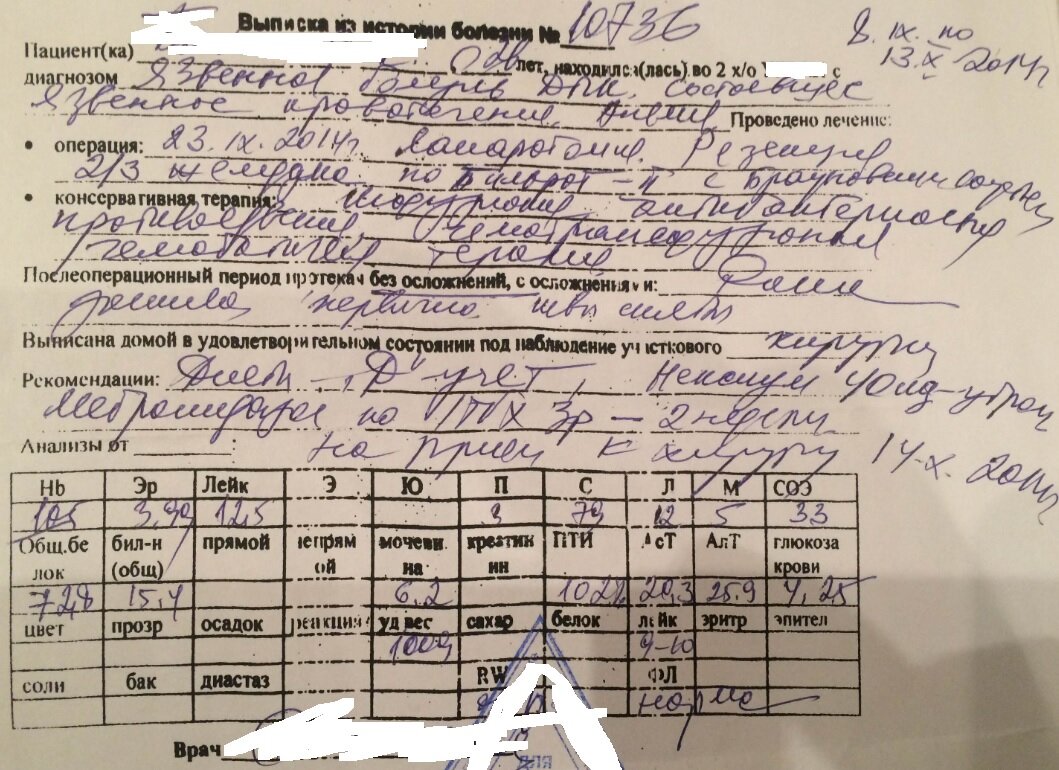 Выписка из истории болезни № 10736
8. IX. по
13. X 2014г
Пациент(ка) лет, находился(лась) во 2 х/о с
диагнозом Язвенная болезнь ДПК. Состоявшееся
Язвенное кровотечение. Анемия Проведено лечение:
• операция: 23. IX. 2014г. Лапаротомия. Резекция
2/3 желудка по Бильрот-II с Брауновским
• консервативная терапия: Инфузионная, антибактериальная
противоязвенная, гемотрансфузионная
терапия
Послеоперационный период протекал без осложнений, с осложнениями: Рана
зажила первично швы сняты
Выписана домой в удовлетворительном состоянии под наблюдение участкового хирурга
Рекомендации: Диета, "Д" учет, Нексиум 40мг-утром
Метронидазол по 1т х 3р – 2 недели
Анализы от : На прием к хирургу 14-X. 2014г
Hb Эр Лейк Э Ю П С Л М СОЭ
105 3,90 12,5 3 79 12 5 33
Общ.бе бил-н прямой непрям мочеви креатин ПТИ АсТ АлТ глюкоза
лок (общ) ой на ин крови
72,8 15,4 6,2 102% 20,3 25.9 4,25
цвет прозр осадок реакция уд вес сахар белок лейк эритр эпител
1009 9-10
соли бак диастаз RW ФЛ
норма
Врач
ДЛЯ